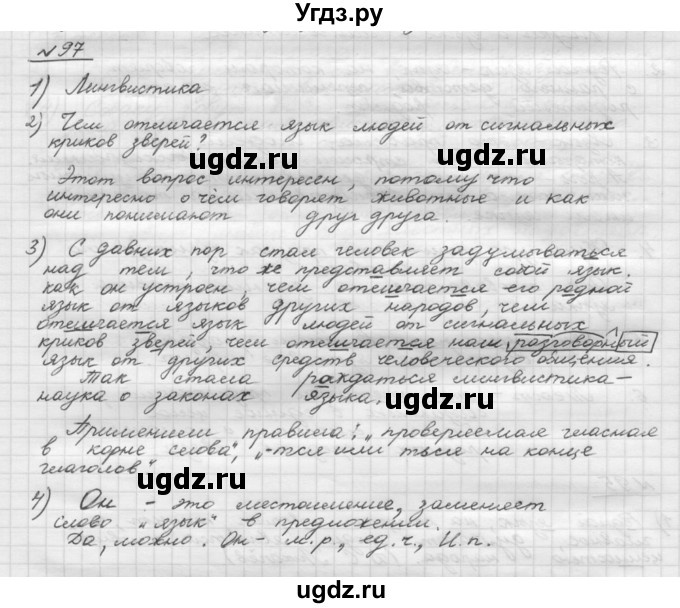 Угдз.ру
№97
1) Лингвистика
2) Чем отличается язык людей от сигнальных
криков зверей?
ugdz.ru ugdz.ru
Этот вопрос интересен, потому что
интересно о чём говорят животные и как
они понимают друг друга.
3) С давних пор стал человек задумываться
над тем, что же представляет собой язык.
как он устроен, чем отличается его родной
язык от языков других народов, чем
отличается язык людей от сигнальных
криков зверей, чем отличается наш разговорный
язык от других средств человеческого общения.
Так стала рождаться лингвистика -
наука о законах языка.
ugdz.ru
Применили правила: „проверяемая гласная
в корне слова", „-тся или ться на конце
глаголов"
4) Он - это местоимение, заменяет
слово „язык" в предложении.
ugdz.ru ugdz.ru
Да, можно. Он - м.р., ед.ч., И.п.
ugdz.ru